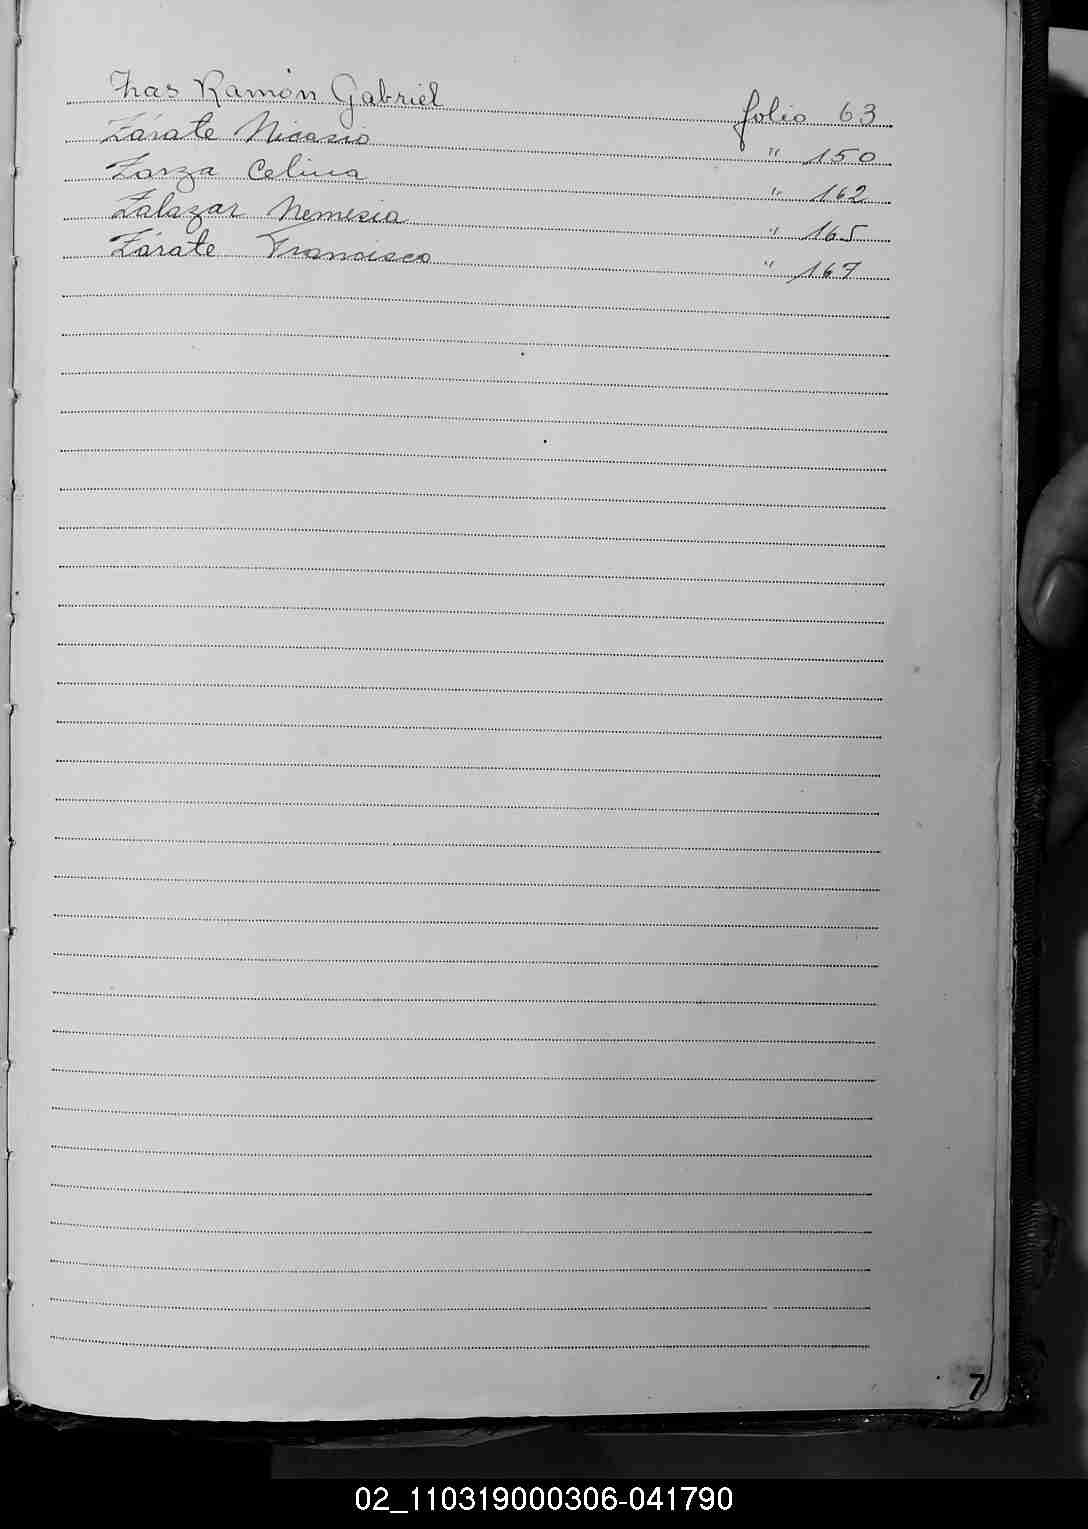 Zras Ramón Gabriel folio 63
Zárate Nicasio " 150
Zarza Celina " 162
Zalazar Nemesia " 165
Zárate Francisco " 167
7
02_110319000306-041790